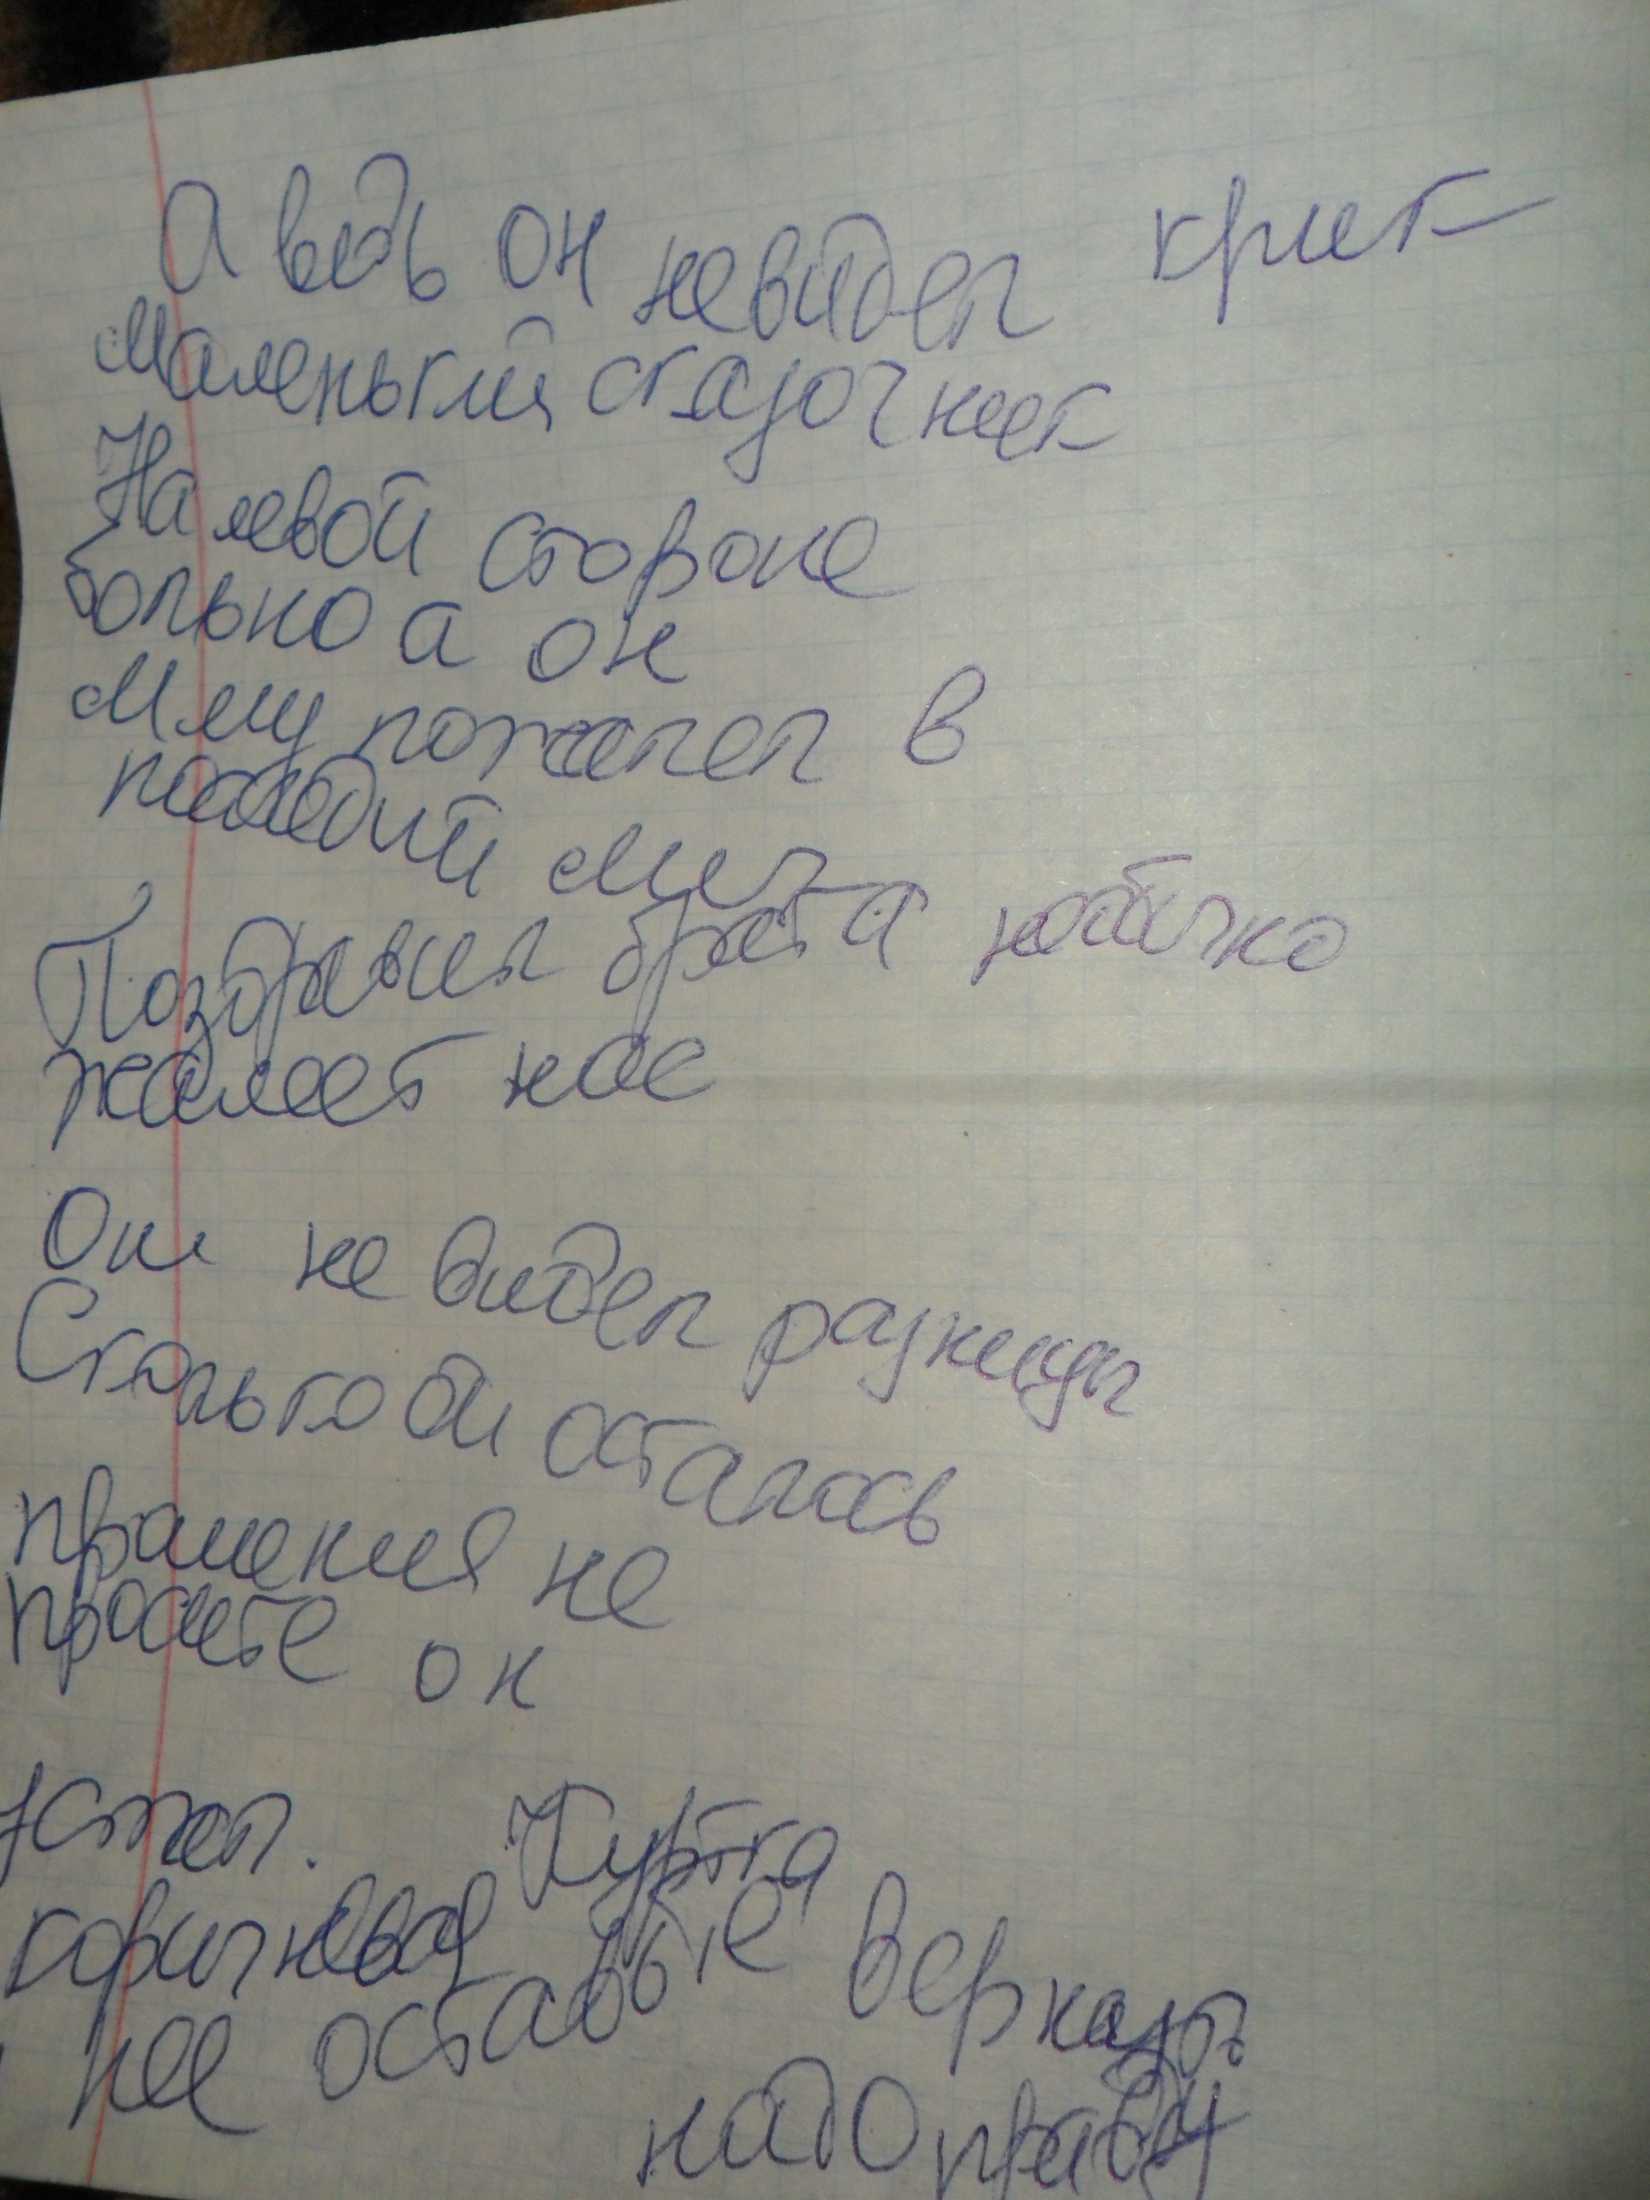 А ведь он невидел крик
маленький сказочник
На левой стороне
больно а он
Мму пожалел в
последий миг
Поздравил брата
жалеет нас
Они не видел разницы
Столько би осталось
прашения не
просите он
Устал. Куртка
коричневая
не оставте
надо правду